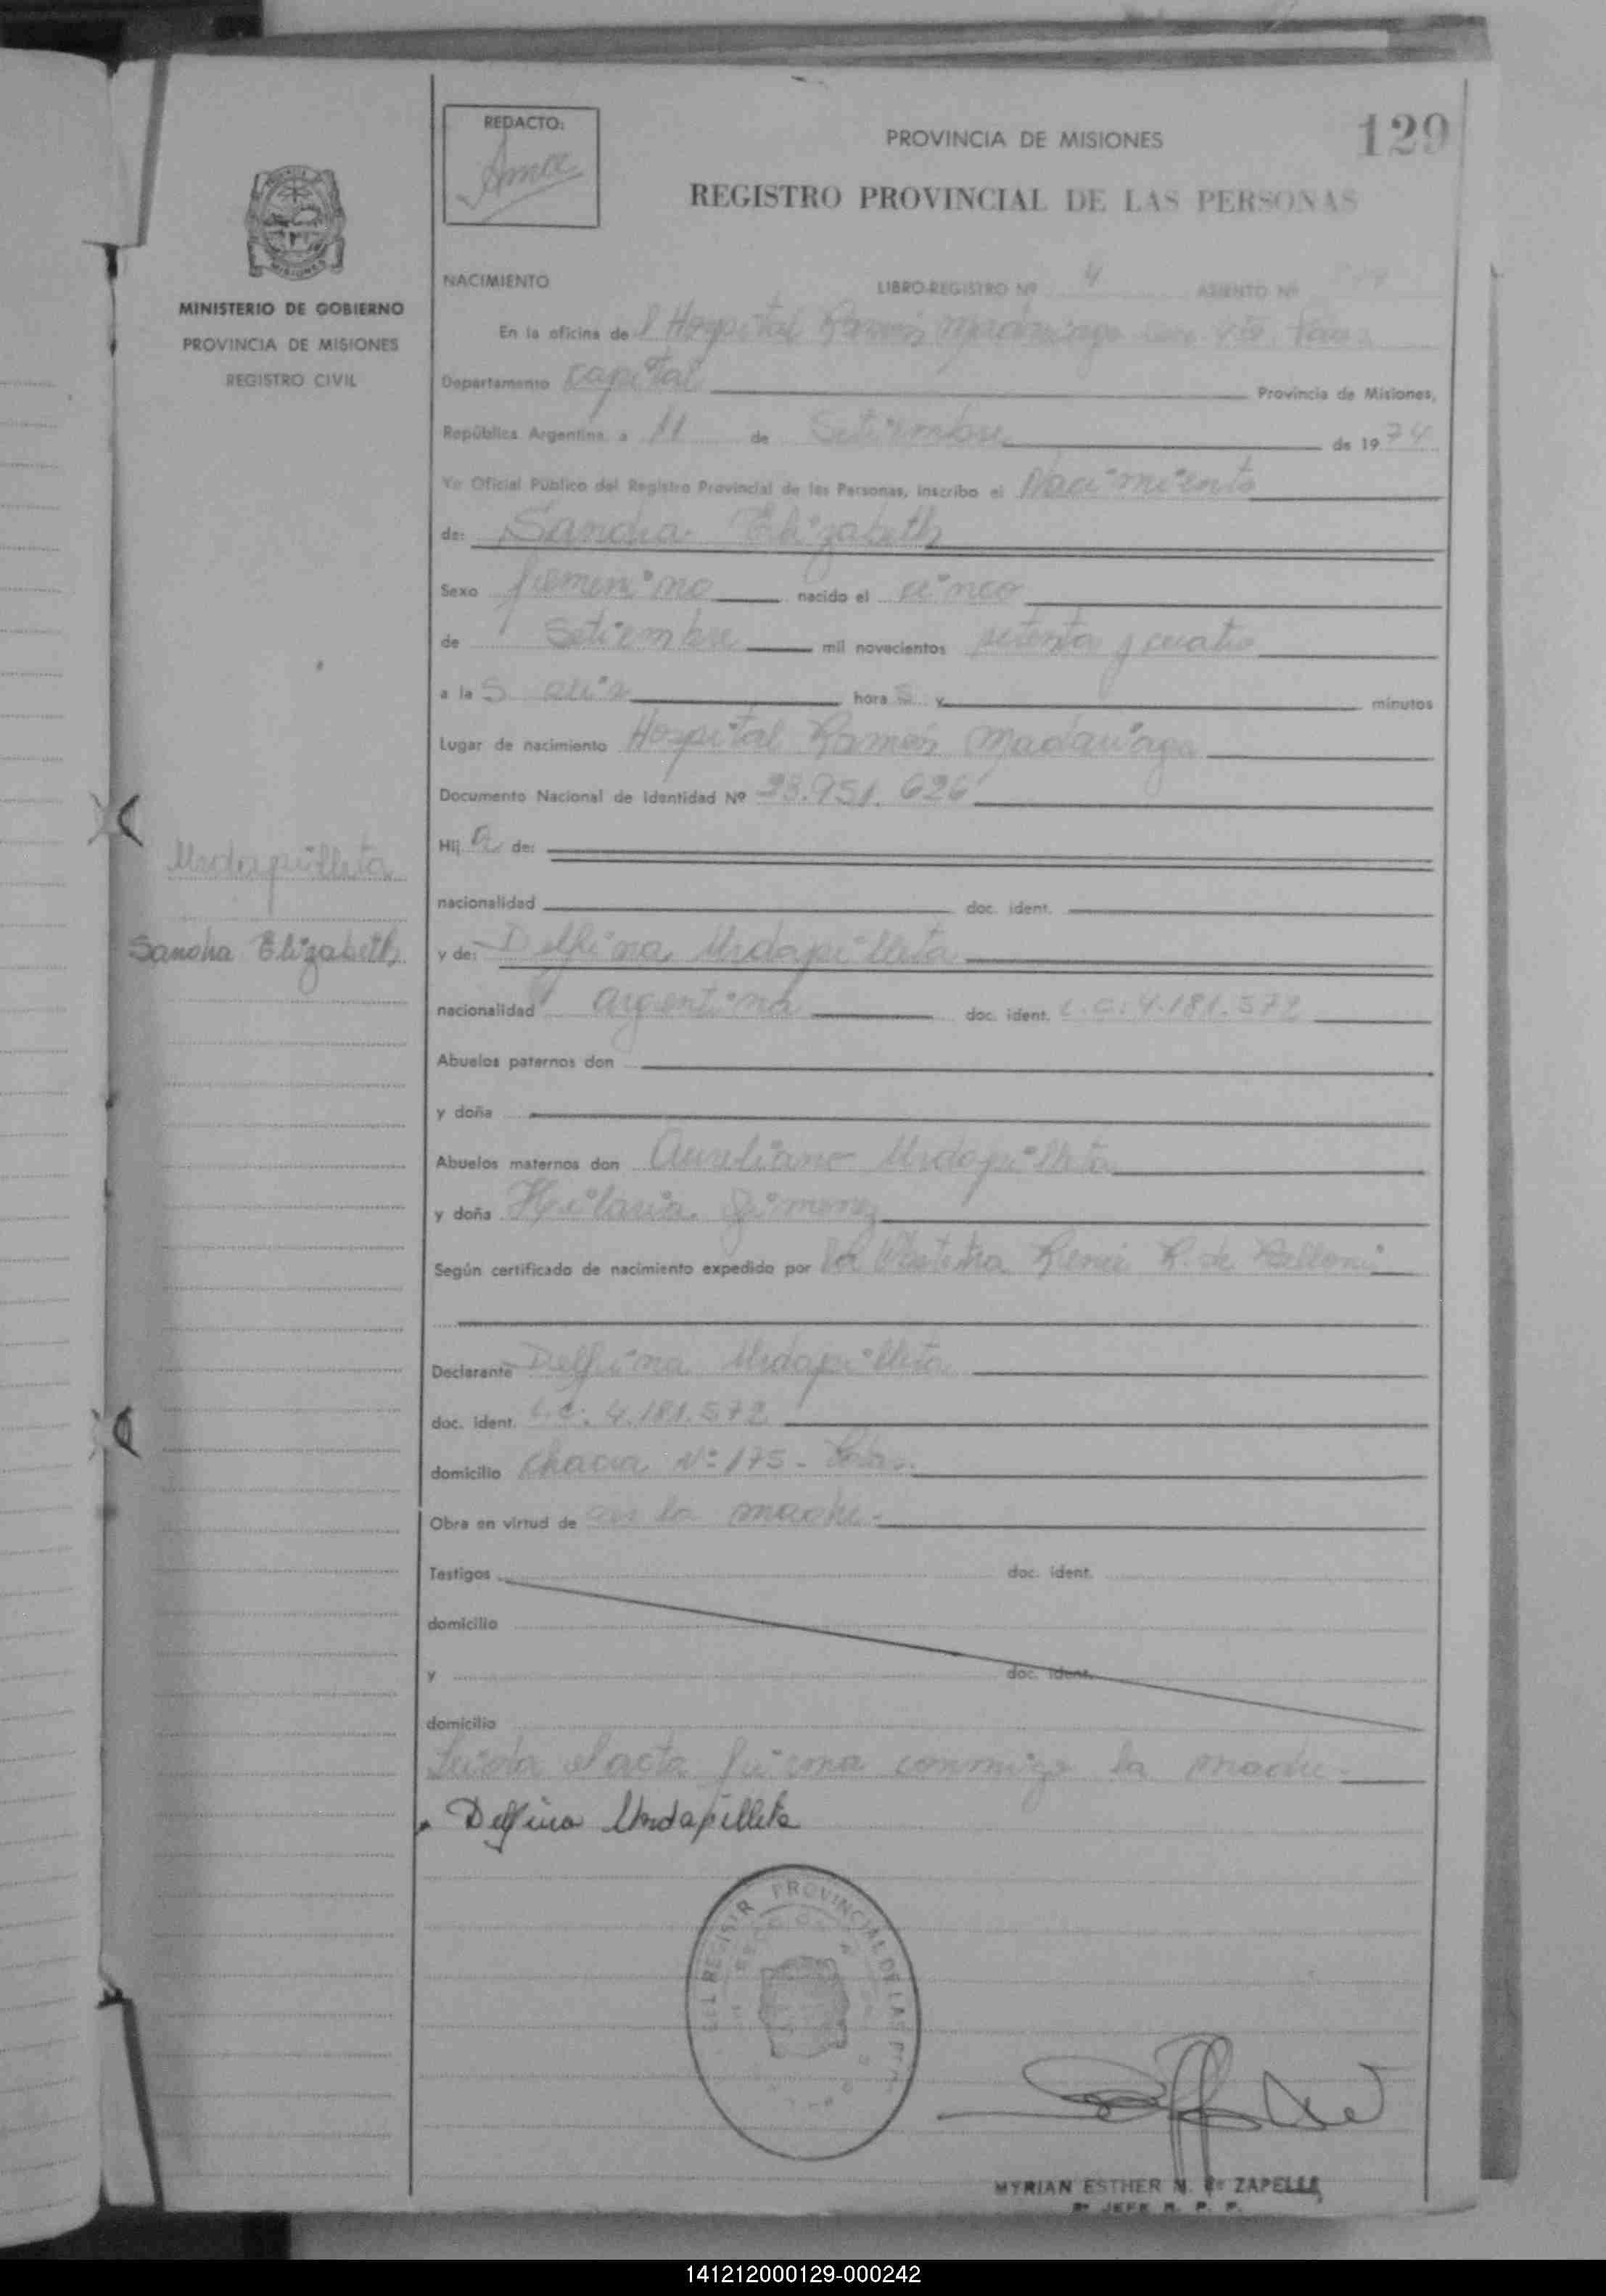 129
REDACTO:
PROVINCIA DE MISIONES
REGISTRO PROVINCIAL DE LAS PERSONAS
MISIONES
MINISTERIO DE GOBIERNO
PROVINCIA DE MISIONES
REGISTRO CIVIL
NACIMIENTO LIBRO-REGISTRO Nº 4 ASIENTO Nº
En la oficina de l Hospital Ramón Madariaga
Departamento Capital Provincia de Misiones,
República Argentina a 11 de Setiembre de 1974
Yo Oficial Público del Registro Provincial de las Personas, inscribo el Nacimiento
de: Sandra Elizabeth
Sexo femenino nacido el cinco
de Setiembre mil novecientos setenta y cuatro
a la s diez hora s y minutos
Lugar de nacimiento Hospital Ramón Madariaga
Documento Nacional de Identidad Nº 23.951.626
Hij a de:
Urdapilleta
nacionalidad doc. ident.
Sandra Elizabeth
y de: Delfina Urdapilleta
nacionalidad argentina doc. ident. L.C. 4.181.572
Abuelos paternos don
y doña
Abuelos maternos don Aureliano Urdapilleta
y doña Hilaria Gimenez
Según certificado de nacimiento expedido por la Obstetra R. de
Declarante Delfina Urdapilleta
doc. ident. L.C. 4.181.572
domicilio Chacra Nº 175 -
Obra en virtud de ser la madre -
Testigos doc. ident.
domicilio
y doc. ident.
domicilio
Leida el acta firma conmigo la madre -
Delfina Urdapilleta
DEL REGISTR PROVINCIAL DE LAS
MYRIAN ESTHER N. de ZAPELLI
JEFE R. P. P.
141212000129-000242